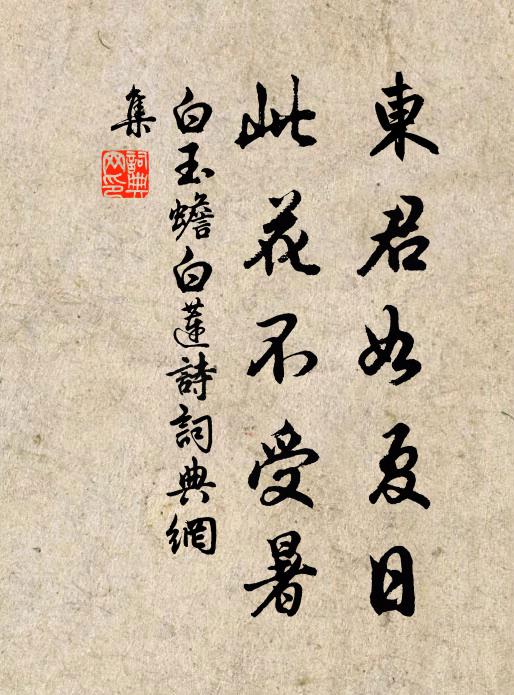 東君如夏日
此花不受暑
白玉蟾白蓮詩詞典網
集
詞典
网印